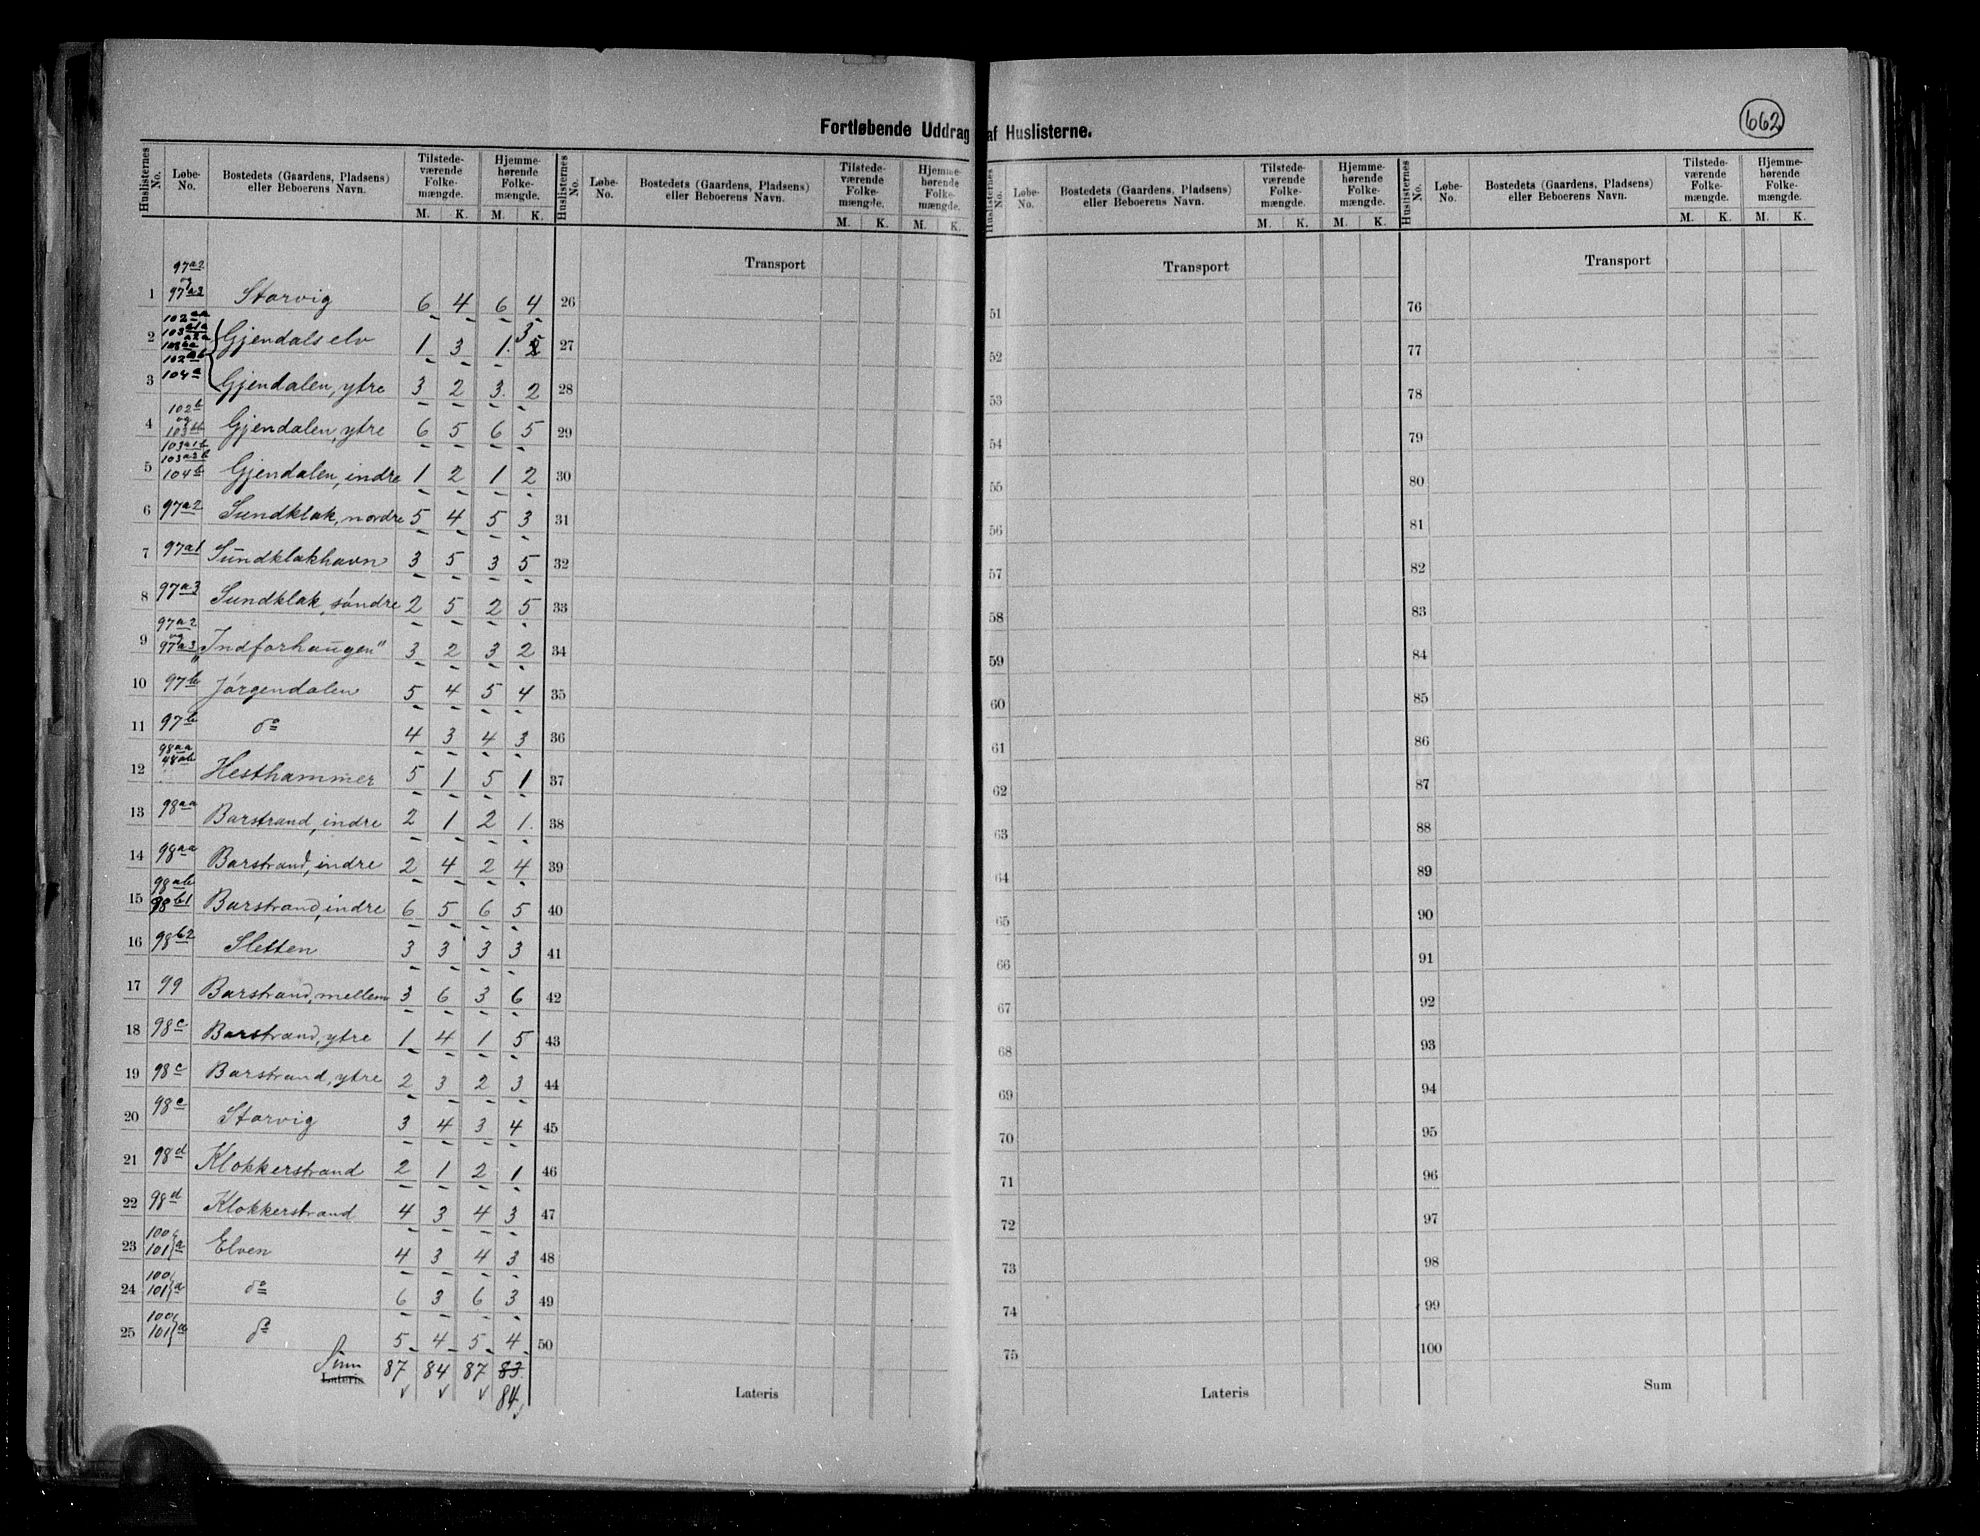 662
Fortløbende Uddrag af Huslisterne.
Huslisternes No. | Løbe-No. | Bostedets (Gaardens, Pladsens) eller Beboerens Navn. | Tilstedeværende Folkemængde. M. K. | Hjemmehørende Folkemængde. M. K.
Huslisternes No. | Løbe-No. | Bostedets (Gaardens, Pladsens) eller Beboerens Navn. | Tilstedeværende Folkemængde. M. K. | Hjemmehørende Folkemængde. M. K.
Huslisternes No. | Løbe-No. | Bostedets (Gaardens, Pladsens) eller Beboerens Navn. | Tilstedeværende Folkemængde. M. K. | Hjemmehørende Folkemængde. M. K.
Huslisternes No. | Løbe-No. | Bostedets (Gaardens, Pladsens) eller Beboerens Navn. | Tilstedeværende Folkemængde. M. K. | Hjemmehørende Folkemængde. M. K.
Transport Transport Transport
1 97a2 og 97a3 Storvig 6 4 6 4 26 51 76
2 Gjendalselv 1 3 1 3 27 52 77
3 104a Gjendalen, ytre 3 2 3 2 28 53 78
4 102b og 103 Gjendalen, ytre 6 5 6 5 29 54 79
5 103a1b 103a3b 104b Gjendalen, indre 1 2 1 2 30 55 80
6 97a2 Sundklak, nordre 5 4 5 3 31 56 81
7 97a1 Sundklakhavn 3 5 3 5 32 57 82
8 97a3 Sundklak, søndre 2 5 2 5 33 58 83
9 97a2 og 97a3 "Indforhaugen" 3 2 3 2 34 59 84
10 97b Jørgendalen 5 4 5 4 35 60 85
11 97b do 4 3 4 3 36 61 86
12 98aa 98ab Hesthammer 5 1 5 1 37 62 87
13 98aa Barstrand, indre 2 1 2 1 38 63 88
14 98aa Barstrand, indre 2 4 2 4 39 64 89
15 98ab 98b1 Barstrand, indre 6 5 6 5 40 65 90
16 98b2 Sletten 3 3 3 3 41 66 91
17 99 Barstrand, mellem 3 6 3 6 42 67 92
18 98c Barstrand, ytre 1 4 1 5 43 68 93
19 98c Barstrand, ytre 2 3 2 3 44 69 94
20 98c Storvig 3 4 3 4 45 70 95
21 98d Klokkerstrand 2 1 2 1 46 71 96
22 98d Klokkerstrand 4 3 4 3 47 72 97
23 100 101 a Elven 4 3 4 3 48 73 98
24 100 101 a do 6 3 6 3 49 74 99
25 100 101 do 5 4 5 4 50 75 100
Sum 87 84 87 83
Lateris 84 Lateris Lateris Sum